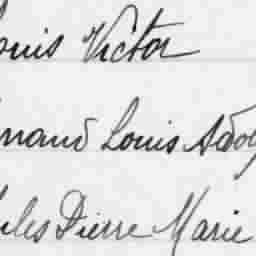 ouis Victor
rnand Louis Adol
ules Pierre Marie